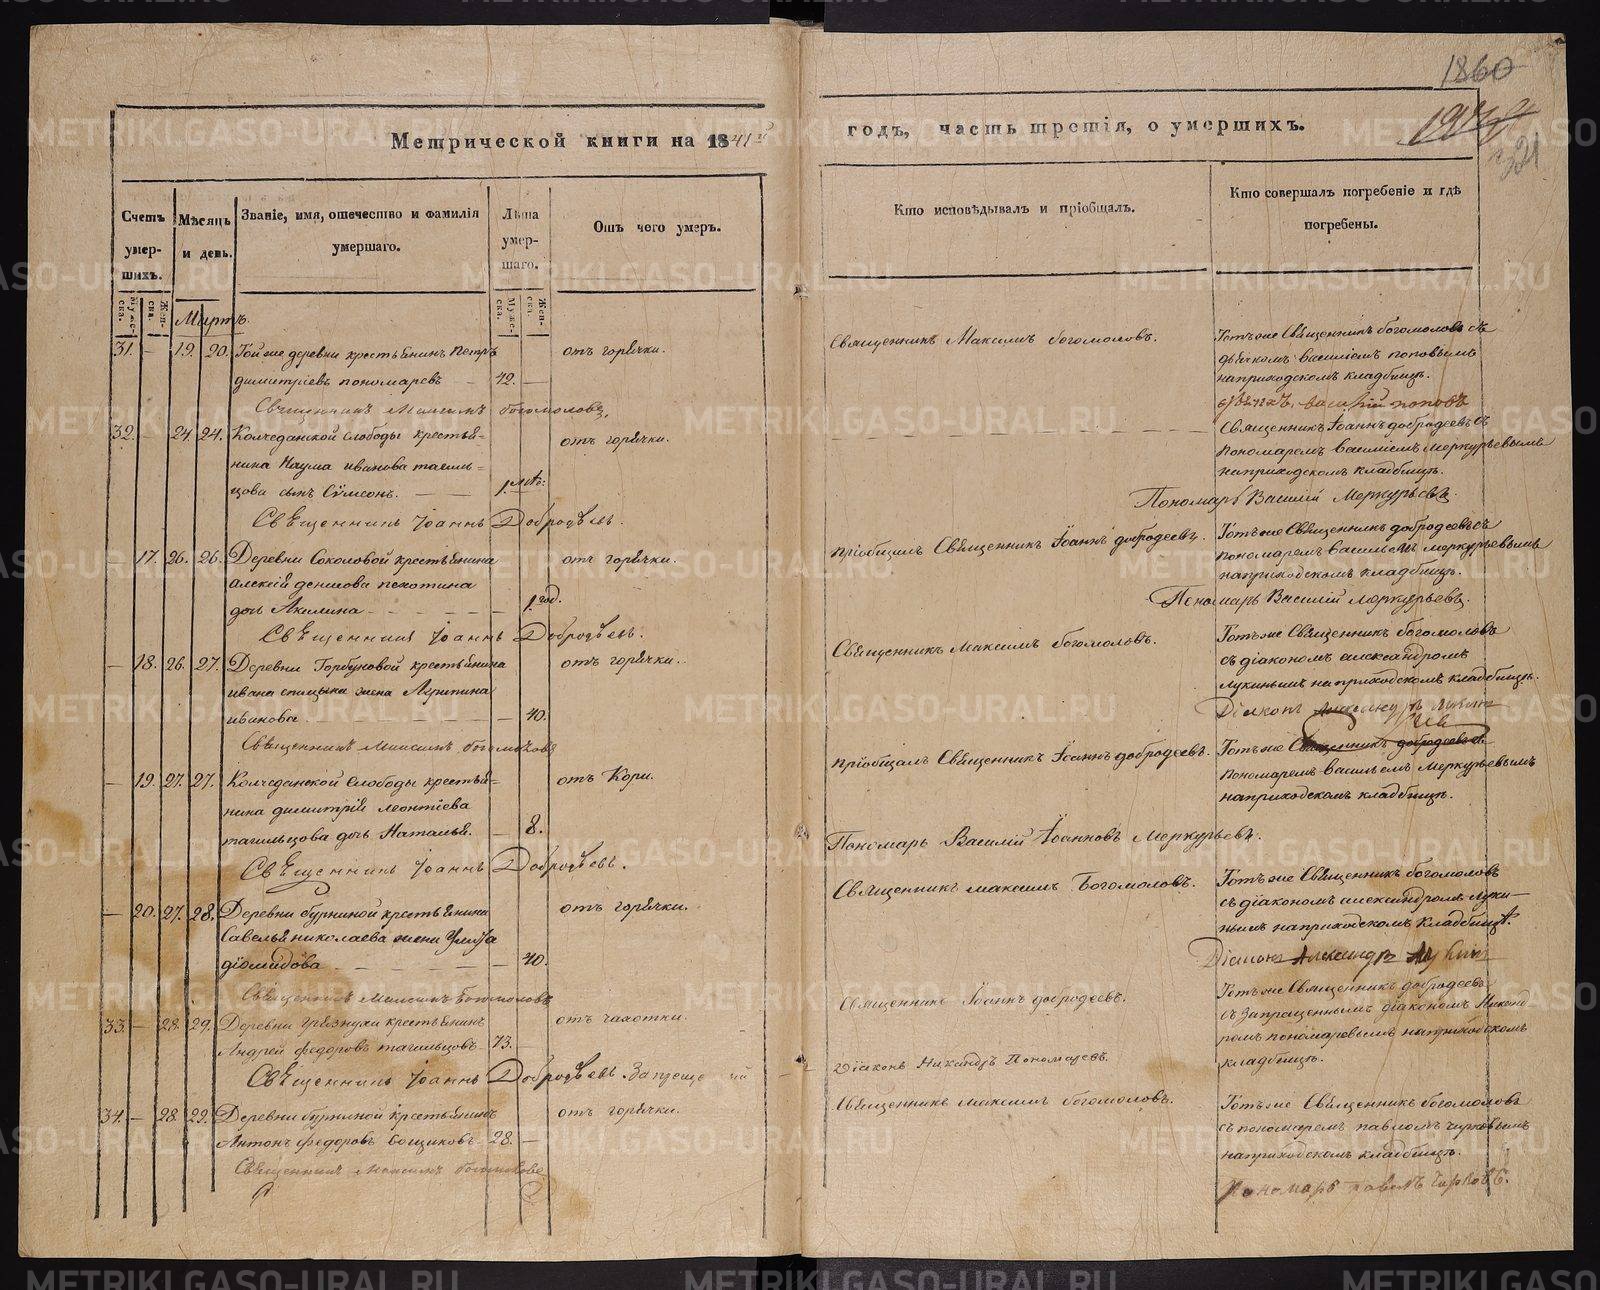 1860
321
Метрической книги на 1841й
годъ, часть третія, о умершихъ.
Счетъ умерших.
Мѣсяцъ и день.
Званіе, имя, отечество и фамилія умершаго.
Лѣта умершаго.
Отъ чего умеръ.
Кто исповѣдывалъ и пріобщалъ.
Кто совершалъ погребеніе и гдѣ погребены.
Мужеска.
Женска.
Мужеска.
Женска.
Мартъ.
31. — 19. 20. Той же деревни крестьянинъ Петръ
димитріевъ пономаревъ — 42. —
отъ горячки.
Священникъ Максимъ богомоловъ.
Тотъ же Священникъ богомоловъ съ
дьячкомъ василіемъ поповымъ
на приходскомъ кладбищѣ.
Священникъ Максимъ богомоловъ.
дьячекъ василій поповъ
32. — 24. 24. Колчеданской слободы крестья-
нина Наума иванова тагиль-
цова сынъ Сѵмеонъ. — — 1.
отъ горячки.
Священникъ Іоаннъ добродеевъ съ
пономаремъ василіемъ меркурьевымъ
на приходскомъ кладбищѣ.
Священникъ Іоаннъ Добродѣевъ.
Пономарь Василій Меркурьевъ.
— 17. 26. 26. Деревни Соколовой крестьянина
алексій денисова пехотина
дочь Акилина — — — 1. год.
отъ горячки.
пріобщалъ Священникъ Іоаннъ добродеевъ.
Тотъ же Священникъ добродеевъ съ
пономаремъ васильемъ меркурьевымъ
на приходскомъ кладбищѣ.
Священникъ Іоаннъ Добродѣевъ.
Пономарь Василій Меркурьевъ.
— 18. 26. 27. Деревни Горбуновой крестьянина
ивана спицына жена Агрипина
иванова — — — 40.
отъ горячки.
Священникъ Максимъ богомоловъ.
Тотъ же Священникъ богомоловъ
съ діакономъ александромъ
лукинымъ на приходскомъ кладбищѣ.
Священникъ Максимъ богомоловъ
Діаконъ Александръ Лукинъ
— 19. 27. 27. Колчеданской слободы крестья-
нина димитрій леонтіева
тагильцова дочь Наталья. — 8.
отъ Кори.
пріобщалъ Священникъ Іоаннъ добродеевъ.
Тотъ же Священникъ добродеевъ съ
пономаремъ васильемъ Меркурьевымъ
на приходскомъ кладбищѣ.
Священникъ Іоаннъ Добродѣевъ.
Пономарь Василій Іоанновъ Меркурьевъ.
— 20. 27. 28. Деревни бурниной крестьянина
Савелья николаева жена Улита
діомидова — — — 40.
отъ горячки.
Священникъ максимъ Богомоловъ.
Тотъ же Священникъ богомоловъ
съ діакономъ александромъ луки-
нымъ на приходскомъ кладбищѣ.
Священникъ Максимъ Богомоловъ
Діаконъ Александръ Лукинъ
33. — 28. 29. Деревни грязнухи крестьянинъ
Андрей федоровъ тагильцовъ. 73. —
отъ чахотки.
Священникъ Іоаннъ добродеевъ.
Тотъ же Священникъ добродеевъ
съ запрещеннымъ діакономъ Никанд-
ромъ пономаревымъ на приходскомъ
кладбищѣ.
Священникъ Іоаннъ Добродѣевъ. Запреще
Діаконъ Никандръ Пономаревъ.
34. — 28. 29. Деревни бурниной крестьянинъ
Антонъ федоровъ 28. —
отъ горячки.
Священникъ максимъ богомоловъ.
Тотъ же Священникъ богомоловъ
съ пономаремъ павломъ чирковымъ
на приходскомъ кладбищѣ.
Священникъ Максимъ богомоловъ
Пономарь павелъ Чирковъ.
METRIKI.GASO-URAL.RU